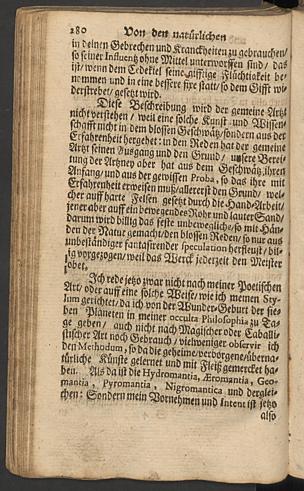 280 Von den natürlichen
in deinen Gebrechen und Kranckheiten zu gebrauchen/
so seiner Influentz ohne Mittel unterworffen sind / das
ist/ wenn dem Cedekiel seine gifftige Flüchtigkeit be-
nommen und in eine bessere fixe statt/ so dem Gifft wi-
derstrebet/ gesetzt wird.
Diese Beschreibung wird der gemeine Artzt
nicht verstehen / weil eine solche Kunst und Wissen-
schafft nicht in dem blossen Geschwätz/ sondern aus der
Erfahrenheit hergehet: in den Reden hat der gemeine
Artzt seinen Ausgang und den Grund / unsere Berei-
tung der Artzney aber hat aus dem Geschwätz ihren
Anfang/ und aus der gewissen Proba, so das ihre mit
Erfahrenheit erweisen muß/ allererst den Grund/ wel-
cher auff harte Felsen gesetzt durch die Hand-Arbeit/
jener aber auff ein bewegendes Rohr und lauter Sand/
darum wird billig das feste unbewegliche/ so mit Hän-
den der Natur gemacht/ den blossen Reden/ so nur aus
unbeständiger fantasirender speculation herfleust/ bil-
lig vorgezogen/ weil das Werck jederzeit den Meister
lobet.
Ich rede jetzo zwar nicht nach meiner Poetischen
Art/ oder auff eine solche Weise/ wie ich meinen Sty-
lum gerichtet/ da ich von der Wunder-Geburt der sie-
ben Planeten in meiner occulta Philosophia zu Ta-
ge geben / auch nicht nach Magischer oder Caballi-
stischer Art noch Gebrauch/ vielweniger observir ich
den Methodum, so da die geheime/ verborgene/ überna-
türliche Künste gelernet und mit Fleiß gemercket ha-
ben. Als da ist die Hydromantia, Æromantia, Geo-
mantia, Pyromantia, Nigromantica und derglei-
chen: Sondern mein Vornehmen und Intent ist jetzo
also